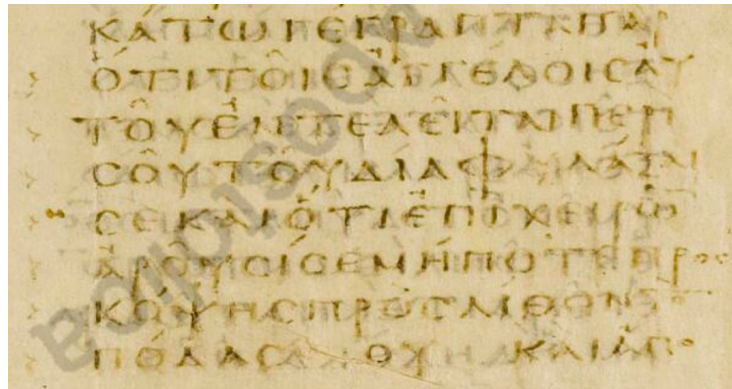 ΚΑΤΩΓΕΓΡΑΠΤΑΙΓΑΡ
ΟΤΙΤΟΙϹΑΓΓΕΛΟΙϹΑΥ
ΤΟΥΕΝΤΕΛΕΙΤΑΙΠΕΡΙ
ϹΟΥΤΟΥΔΙΑΦΥΛΑΞΑΙ
ϹΕΚΑΙΟΤΙΕΠΙΧΕΙΡΩ
ΑΡΟΥϹΙϹΕΜΗΠΟΤΕΠΡΟϹ
ΚΟΨΗϹΠΡΟϹΛΙΘΟΝ
ΠΟΔΑϹΟΥ ΚΑΙΑΠΟ